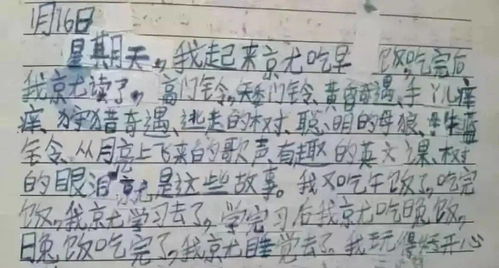 1月16日
星期天,我起来就吃早饭,吃完后
我就读了,高门铃、矮门铃、黄昏奇遇、手丫儿痒
痒、狩猎奇遇、逃走的树、聪、明的母狼、蓝
铃、从月亮上飞来的歌声、有趣的英文课、树
的眼泪就是这些故事。我又吃午饭了,吃完
饭,我就学习去了,学完习后我就吃晚饭,
晚饭吃完了,我就睡觉去了,我玩得好开心